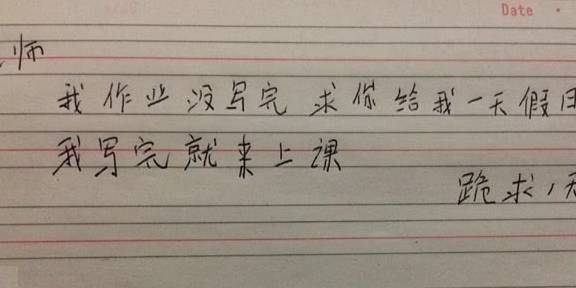 Date
师
我作业没写完 求你给我一天假日
我写完就来上课
跪求1天